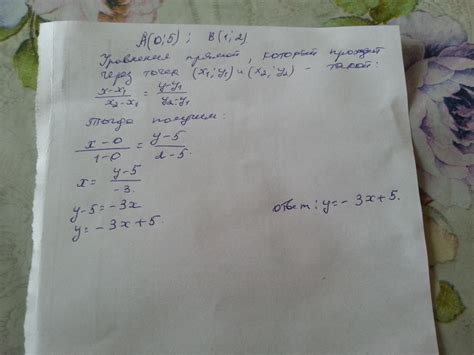 A(0;5); B(1;2)
Уравнение прямой, который проходит
через точек (x₁;y₁) и (x₂;y₂) - такой:
x-x₁/x₂-x₁ = y-y₁/y₂-y₁
Тогда получим:
x-0/1-0 = y-5/2-5
x = y-5/-3
y-5=-3x
y=-3x+5.
ответ: y=-3x+5.